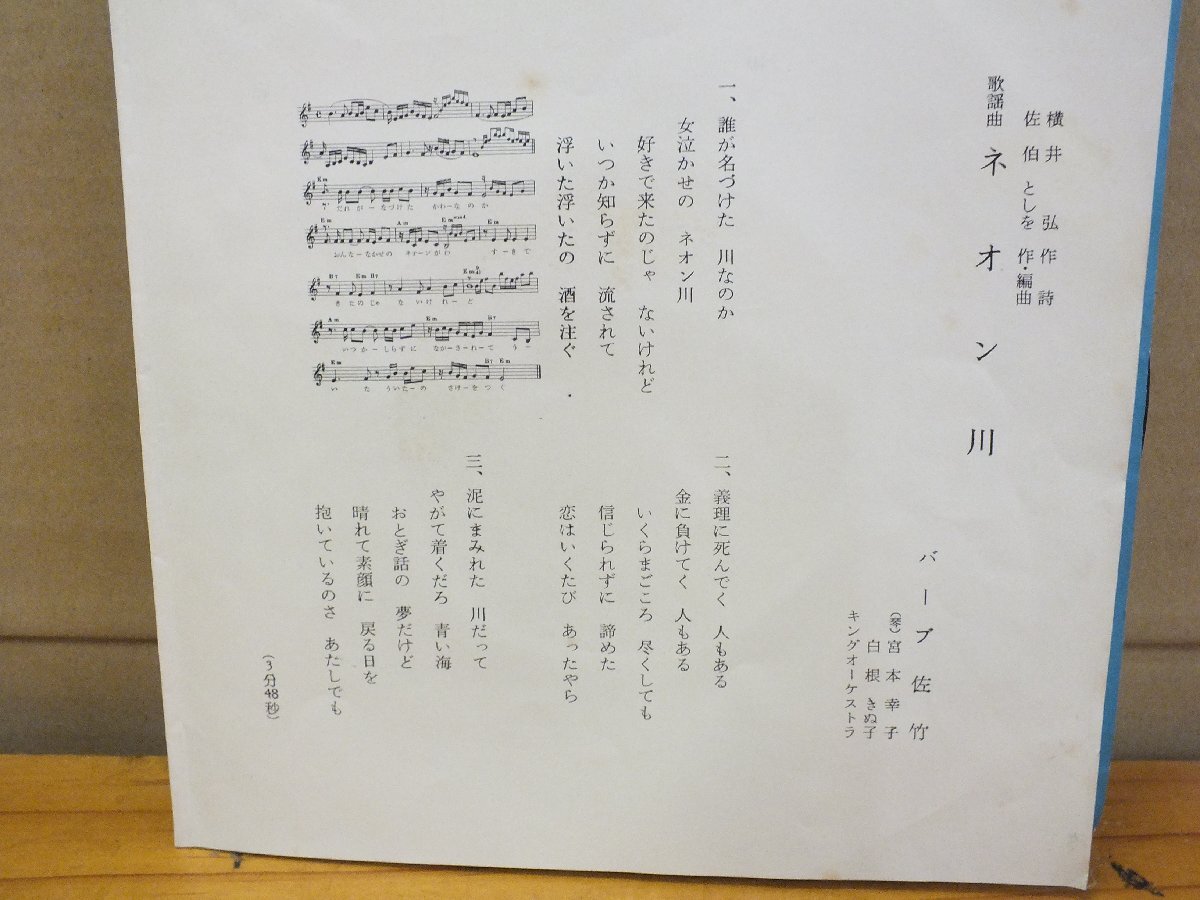 横井 弘 作詩
佐伯 としを 作・編曲
歌謡曲 ネオン川
バーブ佐竹
(琴) 宮本幸子
白根きぬ子
キングオーケストラ
一、誰が名づけた 川なのか
女泣かせの ネオン川
好きで来たのじゃ ないけれど
いつか知らずに 流されて
浮いた浮いたの 酒を注ぐ
二、義理に死んでく 人もある
金に負けてく 人もある
いくらまごころ 尽くしても
信じられずに 諦めた
恋はいくたび あったやら
三、泥にまみれた 川だって
やがて着くだろ 青い海
おとぎ話の 夢だけど
晴れて素顔に 戻る日を
抱いているのさ あたしでも
(3分48秒)
Em
だれがーなづけた かわーなのか
Em Am Em Em
おんなーなかせの ネオーンがわ すーきで
B7 Em B7 Em
きたのじゃ ないけれーど
Am Em B7
いつかーしらずに ながーさーれーて うー
Em B7 Em
いた ういたーの さけーをつぐ